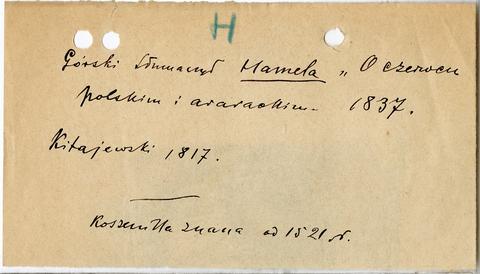 H
Górski tłumaczył Hamela „O czerwcu
polskim i ararackim. 1837.
Kitajewski 1817.
Koszenilla znana od 1521 r.